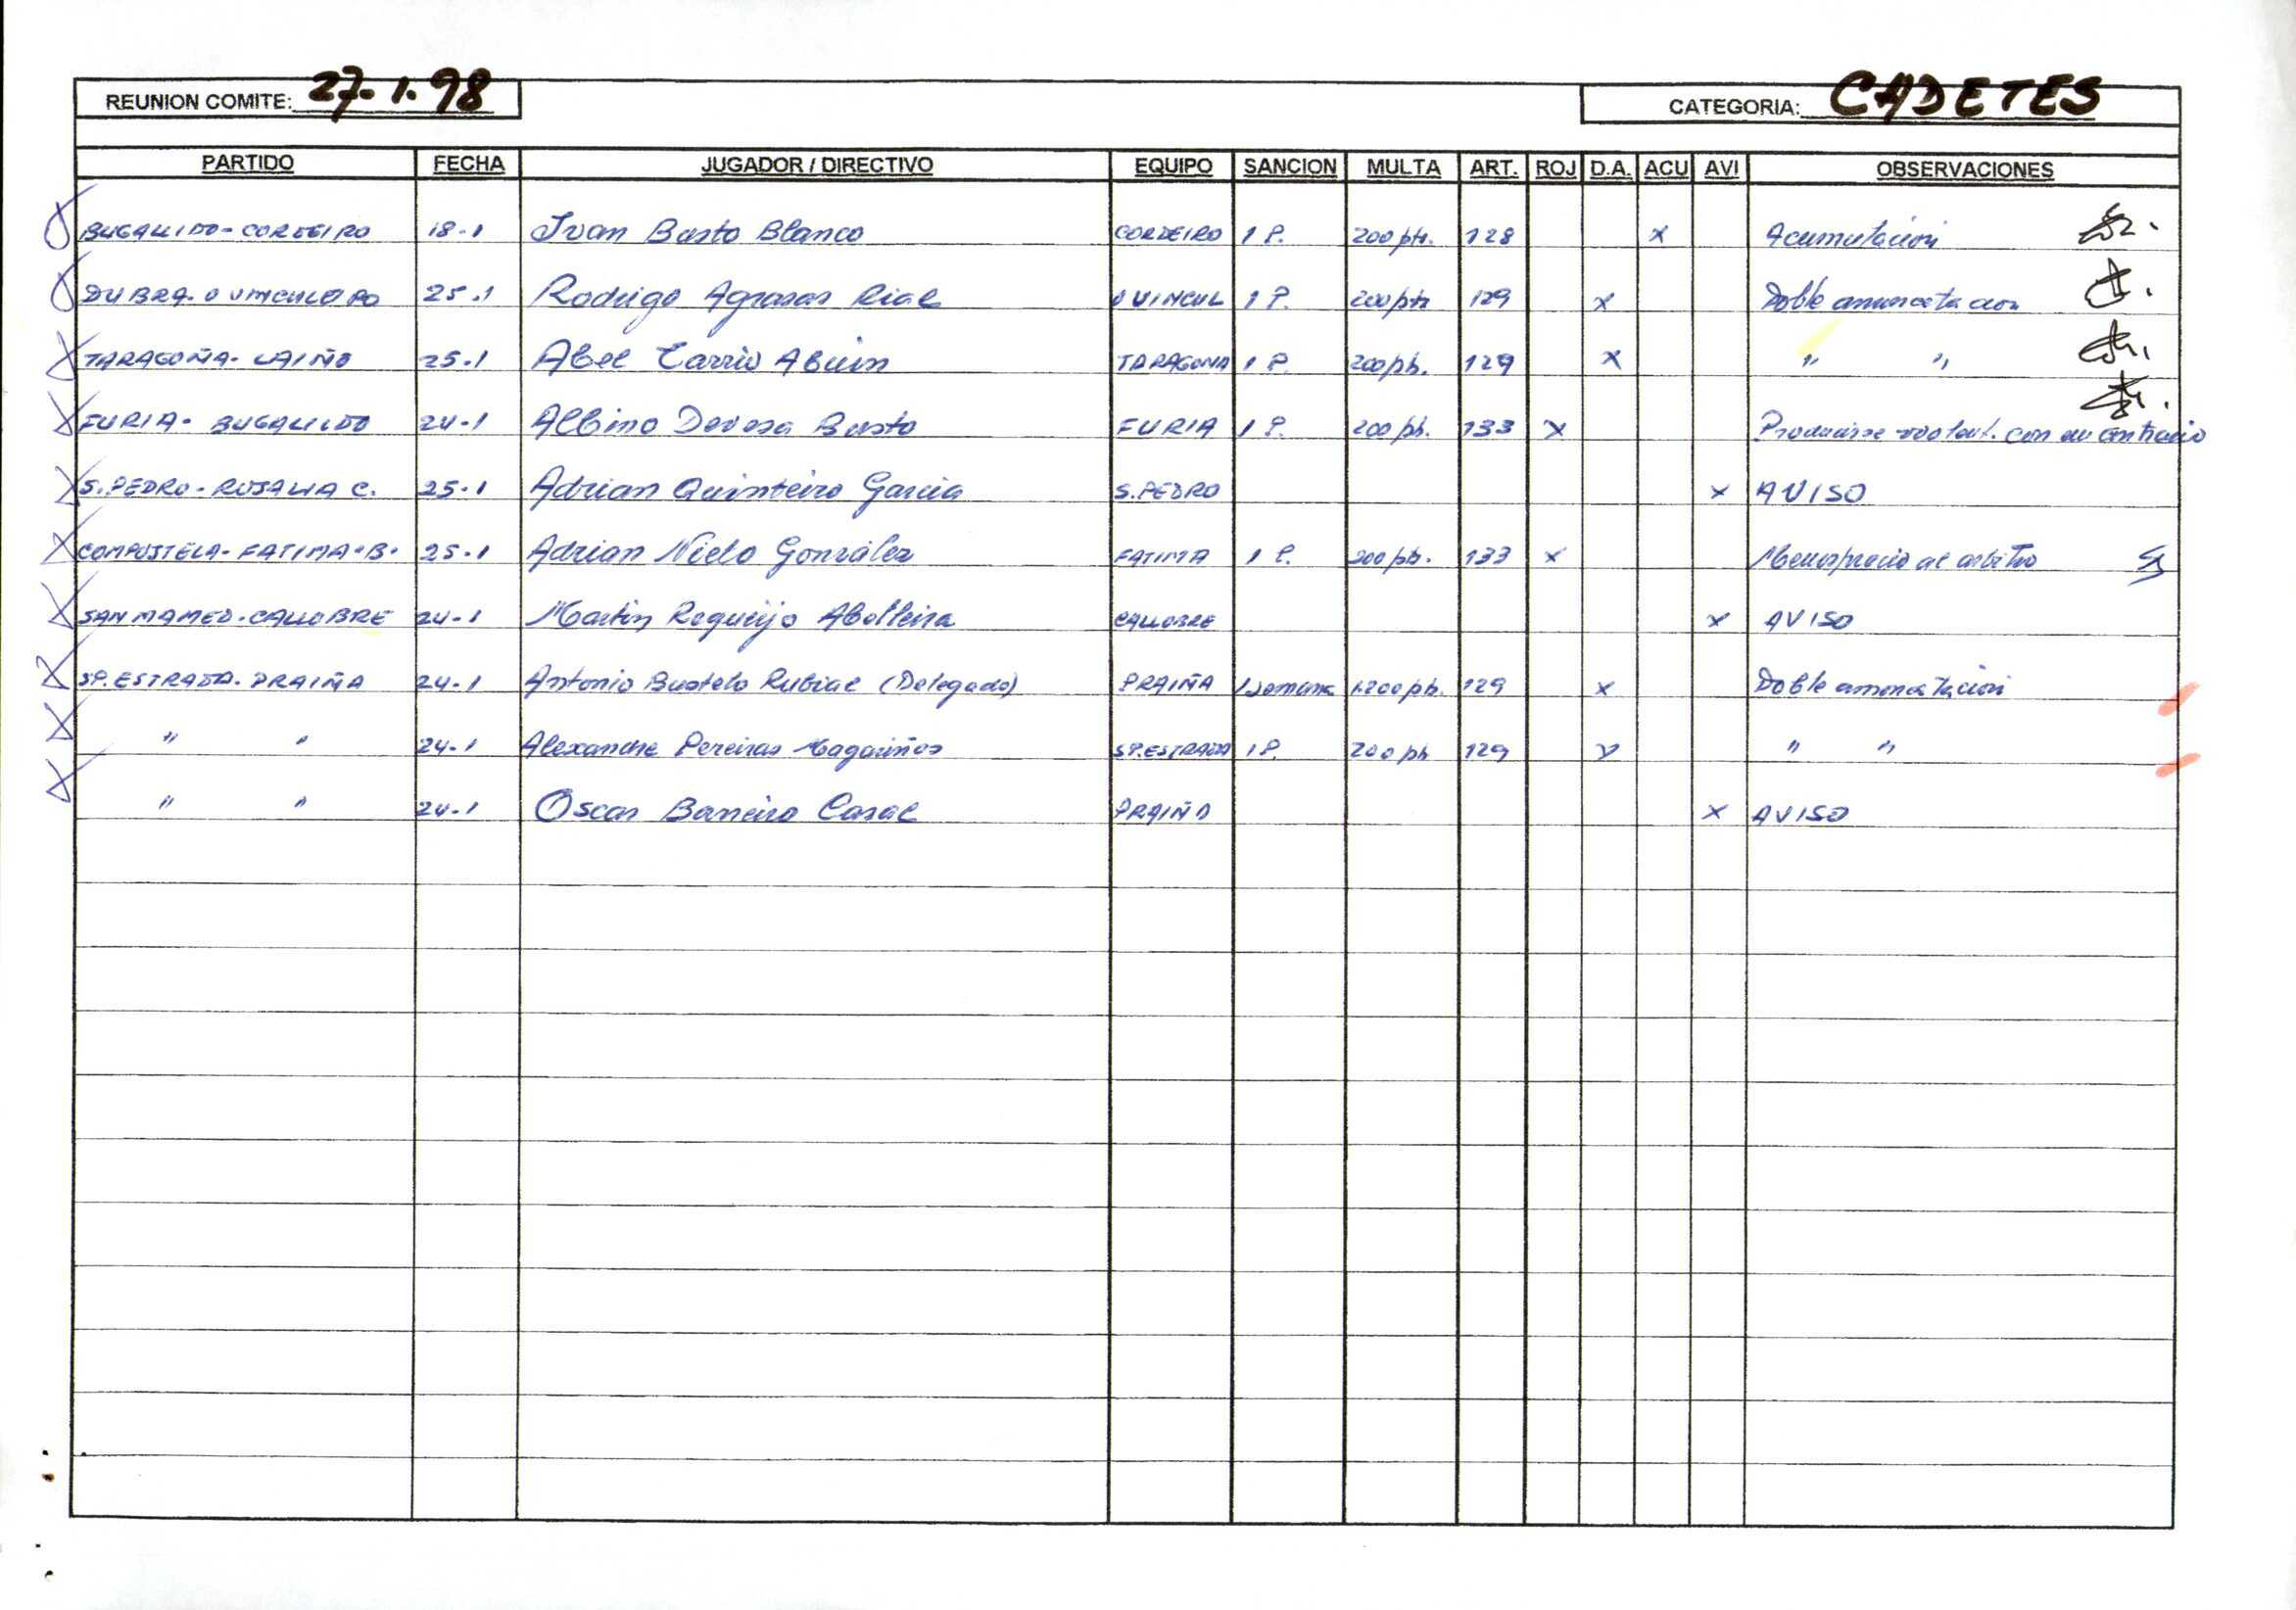 REUNION COMITE: 27-1.98 CATEGORIA: CADETES
PARTIDO FECHA JUGADOR / DIRECTIVO EQUIPO SANCION MULTA ART. ROJ D.A. ACU AVI OBSERVACIONES
BUGALLIDO-CORDEIRO 18-1 Ivan Busto Blanco CORDEIRO 1 P. 200 pts. 128 x Acumulacion
DUBRA. 25.1 Rodrigo Agrasar Rial 1 P. 200 pts 129 x Doble
TARAGOÑA- LAIÑO 25.1 Abel Carrio Abuin TARAGOÑA 1 P. 200 pts. 129 x " "
FURIA- BUGALLIDO 24-1 Albino Devesa Busto FURIA 1 P. 200 pts. 133 x Producirse con contrario
S.PEDRO-ROSALIA C. 25-1 Adrian Quinteiro Garcia S.PEDRO x AVISO
COMPOSTELA-FATIMA-B- 25-1 Adrian Nieto González FATIMA 1 P. 200 pts. 133 x Menosprecio al arbitro
SAN MAMED-CALLOBRE 24-1 Martin Requeijo Abelleira CALLOBRE x AVISO
SP.ESTRADA-PRAIÑA 24-1 Antonio Bustelo Rubial (Delegado) PRAIÑA 1 semana 1.200 pts. 129 x Doble amonestacion
" " 24-1 Alexandre Pereiras Magariños SP.ESTRADA 1 P. 200 pts 129 x " "
" " 24-1 Oscar Barreiro Casal PRAIÑA x AVISO